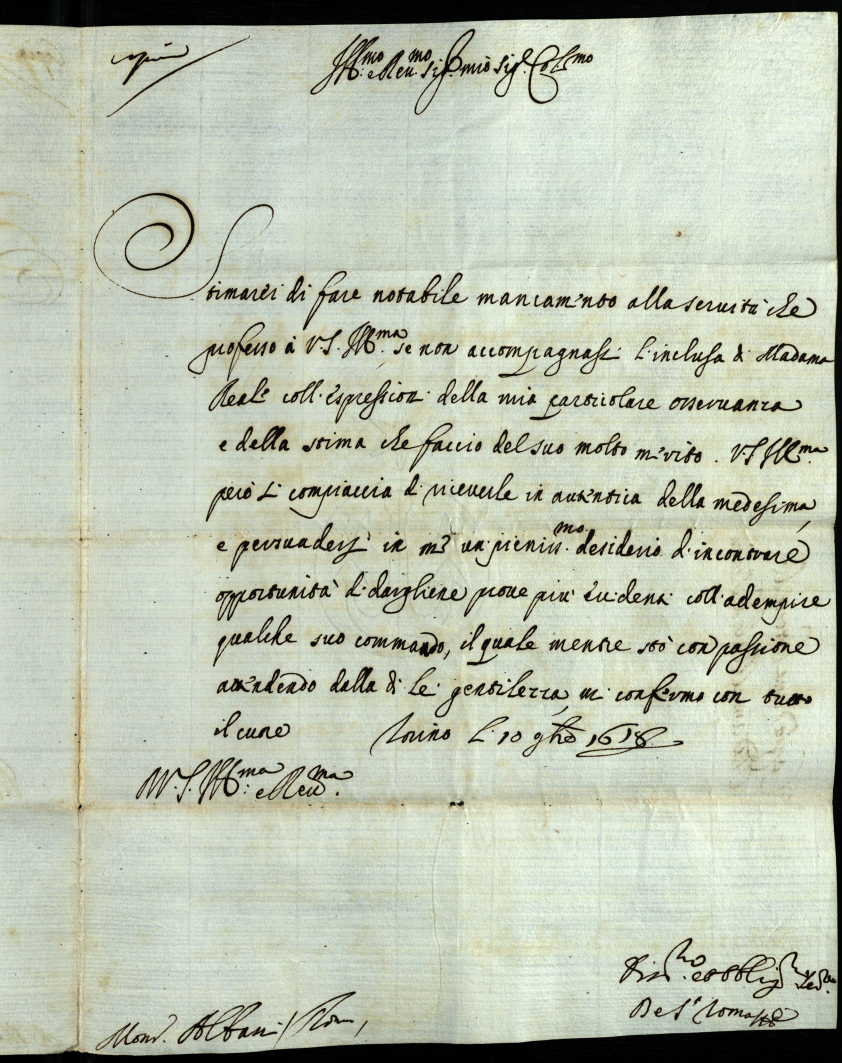 Ill.mo e Reu.mo Sig.r mio Sig.r Col.mo
Stimarei di fare notabile mancamento alla seruitù che
professo à V.S. Ill.ma se non accompagnassi l'inclusa di Madama
Reale coll'espressione della mia particolare osseruanza
e della stima che faccio del suo molto merito. V.S. Ill.ma
però si compiaccia di riceuerle in autentica della medesima,
e persuadersi in me un pieniss.mo desiderio d'incontrare
opportunità di dargliene proue più euidenti coll'adempire
qualche suo commando, il quale mentre stò con passione
attendendo dalla di lei gentilezza, mi confermo con tutto
il cuore Torino li 10 9bre
Di V.S. Ill.ma e Reu.ma
Mons.r Albani / Roma,
Diu.mo et obblig.mo Ser.re
De S.t Tomaso